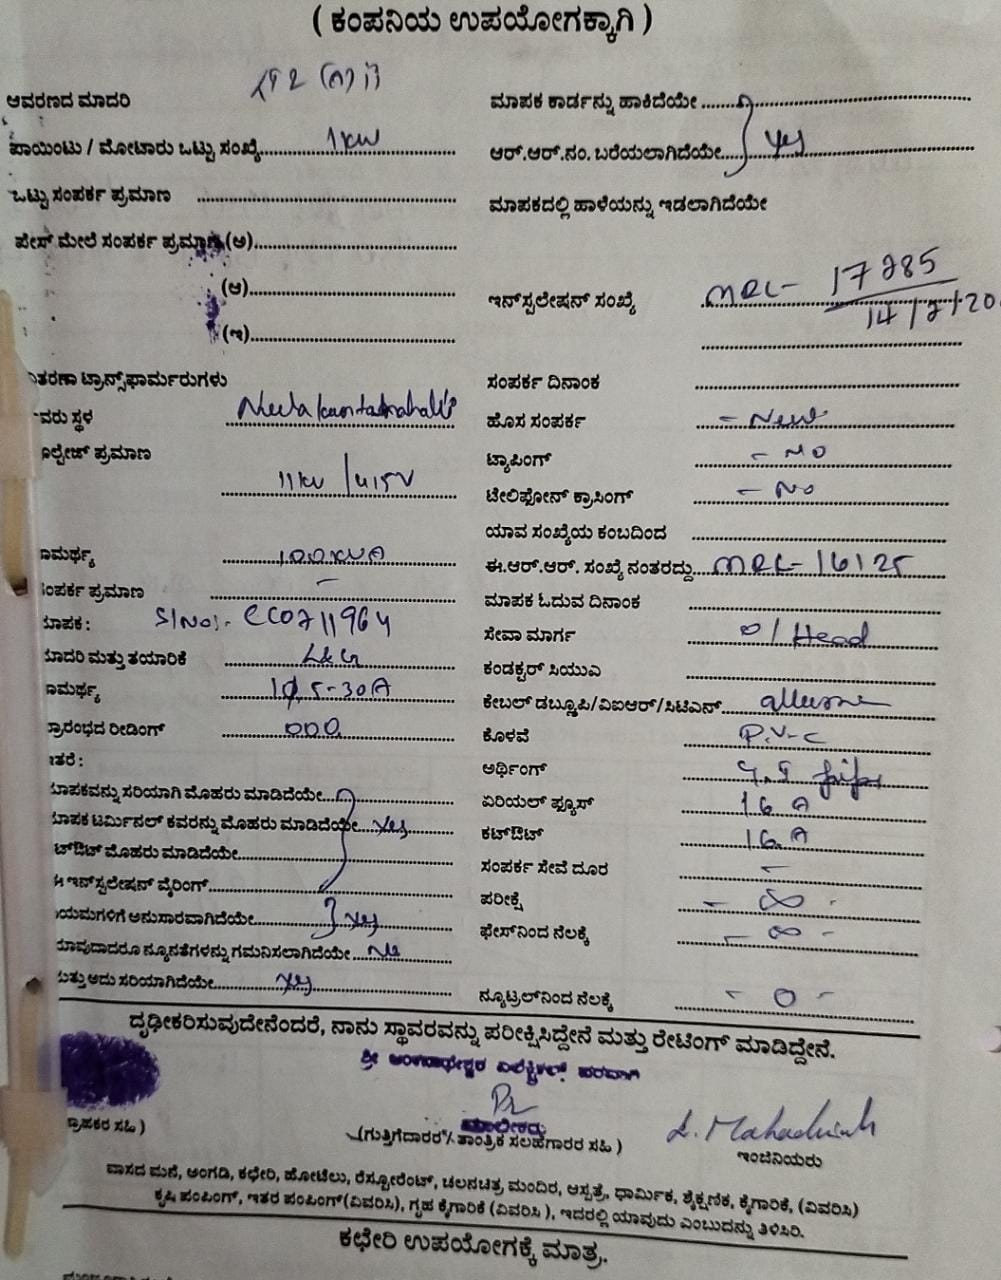 ( ಕಂಪನಿಯ ಉಪಯೋಗಕ್ಕಾಗಿ )
ಆವರಣದ ಮಾದರಿ
ಪಾಯಿಂಟು / ಮೋಟಾರು ಒಟ್ಟು ಸಂಖ್ಯೆ 1 kw
ಒಟ್ಟು ಸಂಪರ್ಕ ಪ್ರಮಾಣ
ಪೇಸ್ ಮೇಲೆ ಸಂಪರ್ಕ ಪ್ರಮಾಣ (ಅ)
(ಆ)
(ಇ)
ತರಣಾ ಟ್ರಾನ್ಸ್‌ಫಾರ್ಮರುಗಳು
ವರು ಸ್ಥಳ
ಪ್ರಮಾಣ 11 kv / 415V
ಾಮರ್ಥ್ಯ 100 KVA
ಸಂಪರ್ಕ ಪ್ರಮಾಣ –
ಮಾಪಕ : S/No:-
ಮಾದರಿ ಮತ್ತು ತಯಾರಿಕೆ L&G
ಾಮರ್ಥ್ಯ 5-30A
ಪ್ರಾರಂಭದ ರೀಡಿಂಗ್ 000
ಇತರೆ :
ಮಾಪಕವನ್ನು ಸರಿಯಾಗಿ ಮೊಹರು ಮಾಡಿದೆಯೇ
ಮಾಪಕ ಟರ್ಮಿನಲ್ ಕವರನ್ನು ಮೊಹರು ಮಾಡಿದೆಯೇ yes
ಟ್‌ಔಟ್ ಮೊಹರು ಮಾಡಿದೆಯೇ
ಈ ಇನ್‌ಸ್ಟಲೇಷನ್ ವೈರಿಂಗ್
ನಿಯಮಗಳಿಗೆ ಅನುಸಾರವಾಗಿದೆಯೇ yes
ಯಾವುದಾದರೂ ನ್ಯೂನತೆಗಳನ್ನು ಗಮನಿಸಲಾಗಿದೆಯೇ No
ಮತ್ತು ಅದು ಸರಿಯಾಗಿದೆಯೇ yes
ಮಾಪಕ ಕಾರ್ಡನ್ನು ಹಾಕಿದೆಯೇ
ಆರ್.ಆರ್.ನಂ. ಬರೆಯಲಾಗಿದೆಯೇ yes
ಮಾಪಕದಲ್ಲಿ ಹಾಳೆಯನ್ನು ಇಡಲಾಗಿದೆಯೇ
ಇನ್‌ಸ್ಟಲೇಷನ್ ಸಂಖ್ಯೆ MRL- 17285
14/2/20
ಸಂಪರ್ಕ ದಿನಾಂಕ
ಹೊಸ ಸಂಪರ್ಕ – New
ಟ್ಯಾಪಿಂಗ್ – NO
ಟೇಲಿಫೋನ್ ಕ್ರಾಸಿಂಗ್ – No
ಯಾವ ಸಂಖ್ಯೆಯ ಕಂಬದಿಂದ
ಈ.ಆರ್.ಆರ್. ಸಂಖ್ಯೆ ನಂತರದ್ದು MRL- 16125
ಮಾಪಕ ಓದುವ ದಿನಾಂಕ
ಸೇವಾ ಮಾರ್ಗ O/Head
ಕಂಡಕ್ಟರ್ ಸಿಯುಎ
ಕೇಬಲ್ ಡಬ್ಲೂಪಿ/ವಿಐಆರ್/ಸಿಟಿಎಸ್
ಕೊಳವೆ P.V.C
ಅರ್ಥಿಂಗ್ G.I pipe
ಏರಿಯಲ್ ಫ್ಯೂಸ್ 16 A
ಕಟ್‌ಔಟ್ 16 A
ಸಂಪರ್ಕ ಸೇವೆ ದೂರ –
ಪರೀಕ್ಷೆ – ∞ -
ಫೇಸ್‌ನಿಂದ ನೆಲಕ್ಕೆ – ∞ -
ನ್ಯೂಟ್ರಲ್‌ನಿಂದ ನೆಲಕ್ಕೆ – 0 –
ದೃಢೀಕರಿಸುವುದೇನೆಂದರೆ, ನಾನು ಸ್ಥಾವರವನ್ನು ಪರೀಕ್ಷಿಸಿದ್ದೇನೆ ಮತ್ತು ರೇಟಿಂಗ್ ಮಾಡಿದ್ದೇನೆ.
ಶ್ರೀ ಪರವಾಗಿ
ಮಾಲೀಕರು
ಗ್ರಾಹಕರ ಸಹಿ )
(ಗುತ್ತಿಗೆದಾರರ / ತಾಂತ್ರಿಕ ಸಲಹೆಗಾರರ ಸಹಿ )
ಇಂಜಿನಿಯರು
ವಾಸದ ಮನೆ, ಅಂಗಡಿ, ಕಛೇರಿ, ಹೋಟೆಲು, ರೆಸ್ಟೋರೆಂಟ್, ಚಲನಚಿತ್ರ ಮಂದಿರ, ಆಸ್ಪತ್ರೆ, ಧಾರ್ಮಿಕ, ಶೈಕ್ಷಣಿಕ, ಕೈಗಾರಿಕೆ, (ವಿವರಿಸಿ)
ಕೃಷಿ ಪಂಪಿಂಗ್, ಇತರ ಪಂಪಿಂಗ್(ವಿವರಿಸಿ), ಗೃಹ ಕೈಗಾರಿಕೆ (ವಿವರಿಸಿ ), ಇದರಲ್ಲಿ ಯಾವುದು ಎಂಬುದನ್ನು ತಿಳಿಸಿರಿ.
ಕಛೇರಿ ಉಪಯೋಗಕ್ಕೆ ಮಾತ್ರ.